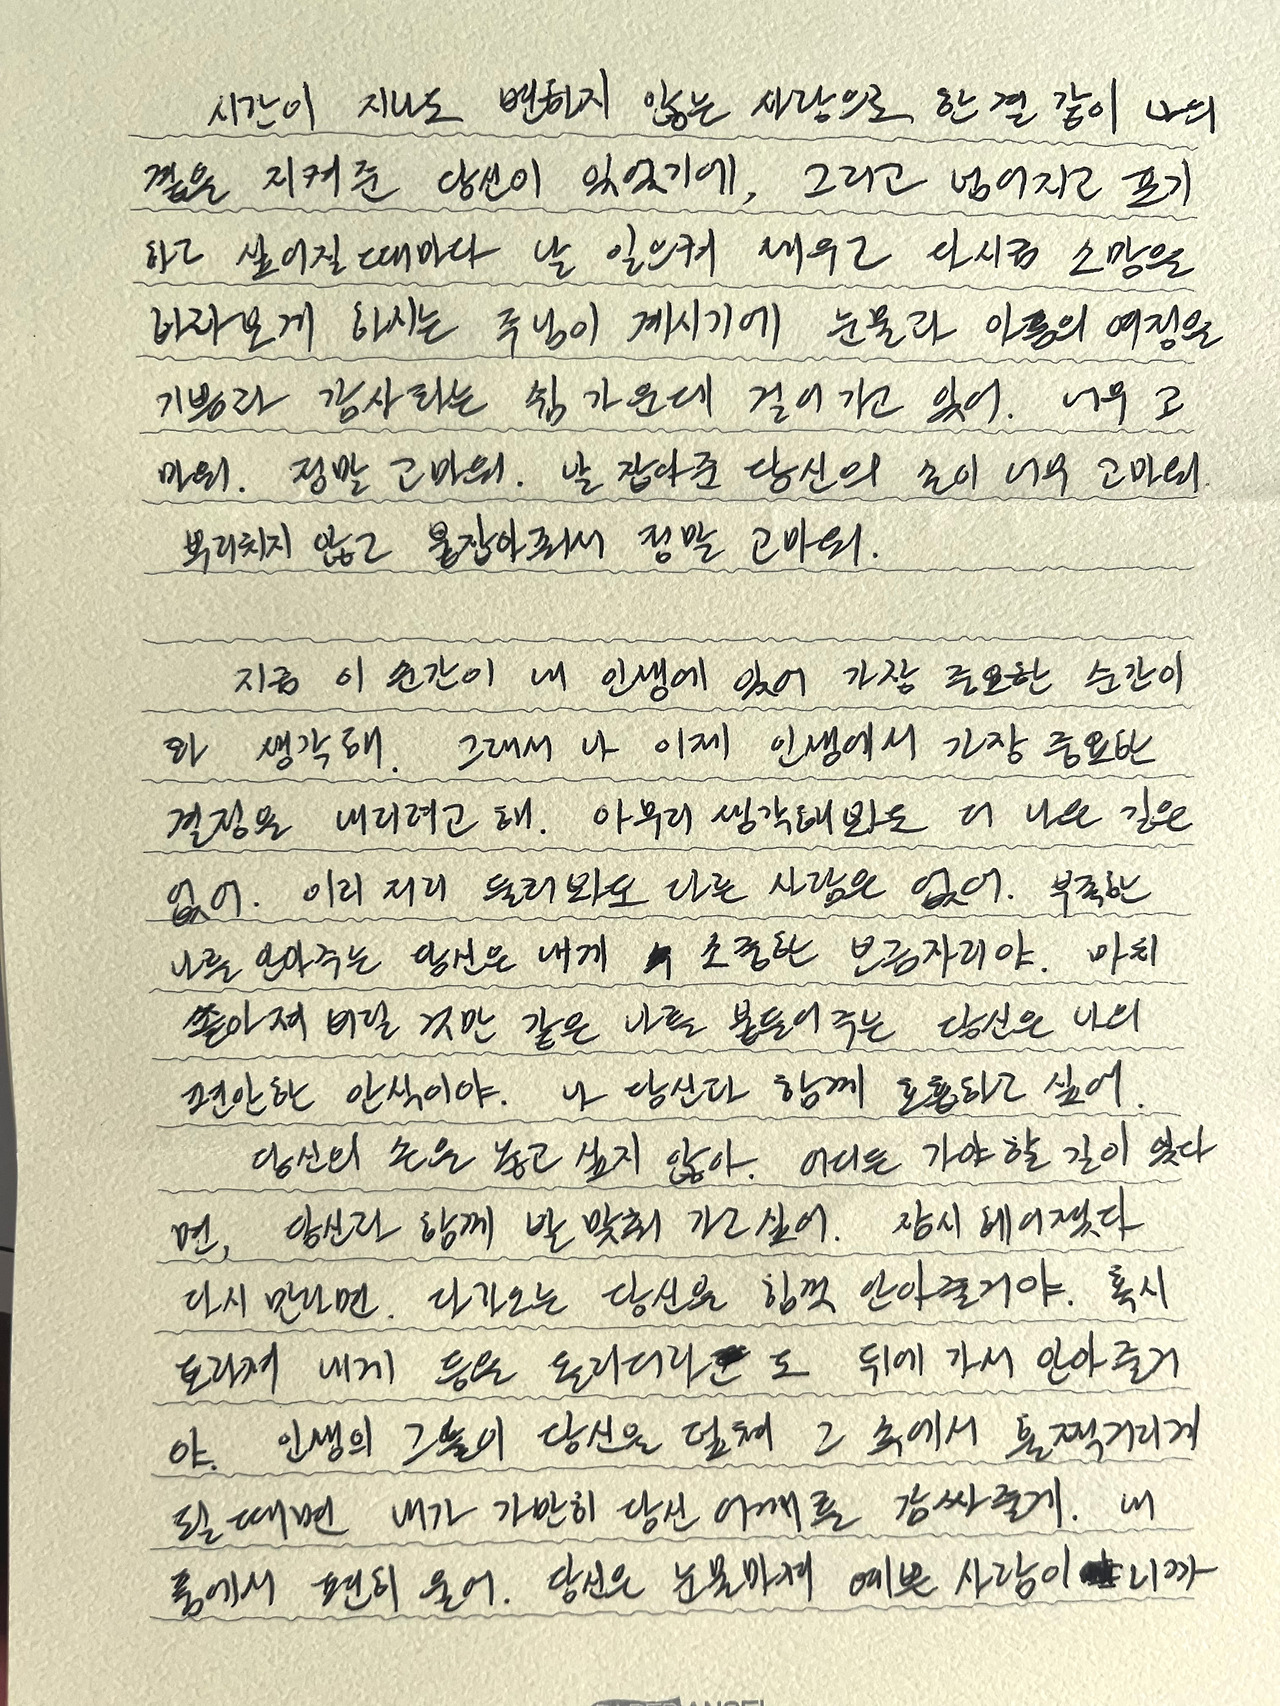 시간이 지나도 변하지 않는 사랑으로 한결 같이 나의
곁을 지켜 준 당신이 있었기에, 그리고 넘어지고 포기
하고 싶어질 때마다 날 일으켜 세우고 다시금 소망을
바라보게 하시는 주님이 계시기에 눈물과 아픔의 여정을
기쁨과 감사라는 쉼 가운데 걸어 가고 있어. 너무 고
마워. 정말 고마워. 날 잡아준 당신의 손이 너무 고마워.
뿌리치지 않고 붙잡아줘서 정말 고마워.
지금 이 순간이 내 인생에 있어 가장 중요한 순간이
라 생각해. 그래서 나 이제 인생에서 가장 중요한
결정을 내리려고 해. 아무리 생각해봐도 더 나은 길은
없어. 이리 저리 둘러봐도 다른 사람은 없어. 부족한
나를 안아주는 당신은 내게 소중한 보금자리야. 마치
쏟아져 버릴 것만 같은 나를 붙들어 주는 당신은 나의
편안한 안식이야. 나 당신과 함께 호흡하고 싶어.
당신의 손을 놓고 싶지 않아. 어디든 가야할 길이 있다
면, 당신과 함께 발 맞춰 가고싶어. 잠시 헤어졌다
다시 만나면. 다가오는 당신을 힘껏 안아줄거야. 혹시
토라져 내게 등을 돌리더라도 뒤에 가서 안아줄거
야. 인생의 그늘이 당신을 덮쳐 그 속에서 훌쩍거리게
될 때면 내가 가만히 당신 어깨를 감싸줄게. 내
품에서 편히 울어. 당신은 눈물마저 예쁜 사람이니까
ANGEL